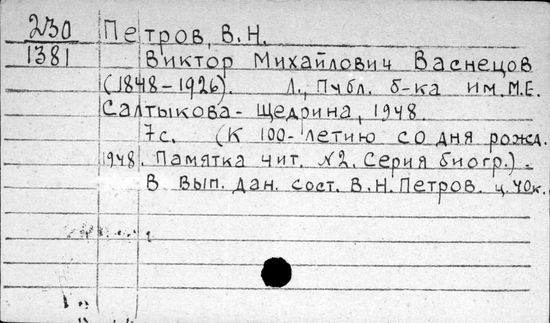 230 Петров, В.Н.
1381 Виктор Михайлович Васнецов
(1848-1926). Л., Публ. б-ка им. М.Е.
Салтыкова-Щедрина, 1948.
7с. (К 100-летию со дня рожд.
1948. Памятка чит. №2. Серия биогр.).
В вып. дан. сост. В.Н. Петров. ц. 40к.